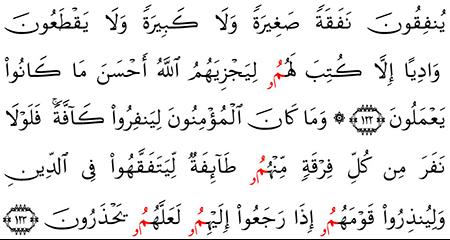 يُنفِقُونَ نَفَقَةً صَغِيرَةً وَلَا كَبِيرَةً وَلَا يَقْطَعُونَ
وَادِيًا إِلَّا كُتِبَ لَهُمُۥ لِيَجْزِيَهُمُ ٱللَّهُ أَحْسَنَ مَا كَانُوا۟
يَعْمَلُونَ ١٢٢ ۞ وَمَا كَانَ ٱلْمُؤْمِنُونَ لِيَنفِرُوا۟ كَآفَّةً ۚ فَلَوْلَا
نَفَرَ مِن كُلِّ فِرْقَةٍ مِّنْهُمُۥ طَآئِفَةٌ لِّيَتَفَقَّهُوا۟ فِى ٱلدِّينِ
وَلِيُنذِرُوا۟ قَوْمَهُمُۥ إِذَا رَجَعُوا۟ إِلَيْهِمُۥ لَعَلَّهُمُۥ يَحْذَرُونَ ١٢٣